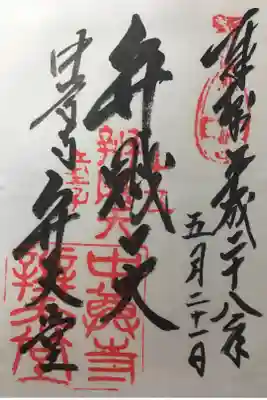 奉拝 平成二十八年
五月二十一日
弁財天
中尊寺
弁天堂
中尊寺